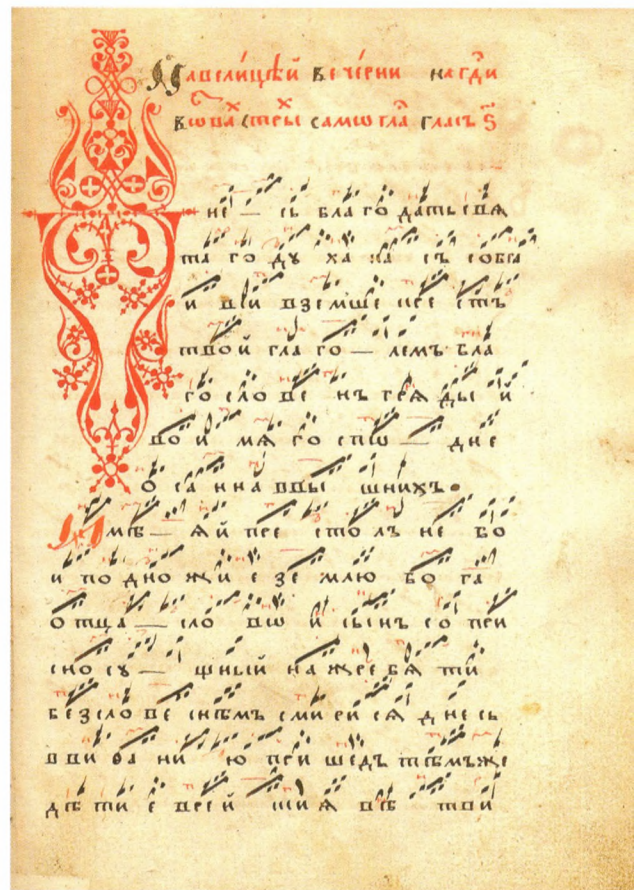 На велицѣй вечерни на гдⷭи
воз̾вахъ стрⷯы самоглаⷭ гласъ ѕ҃
Дне — сь благодать свѧ
таго духа на съ собра
и вси вземше кресᲅъ
твой глаго — лемъ бла
гословенъ грѧдый
во имѧ госпѡ — дне
осанна в вышнихъ.
Имѣ — ѧй престолъ небо
и подножиіе землю бога
отца — слово и сынъ сопри
сносу — щный на жребѧти
безсловеснѣмъ смирисѧ днесь
в виѳанию пришедъ тѣмъже
дѣти еврейшиѧ вѣтви